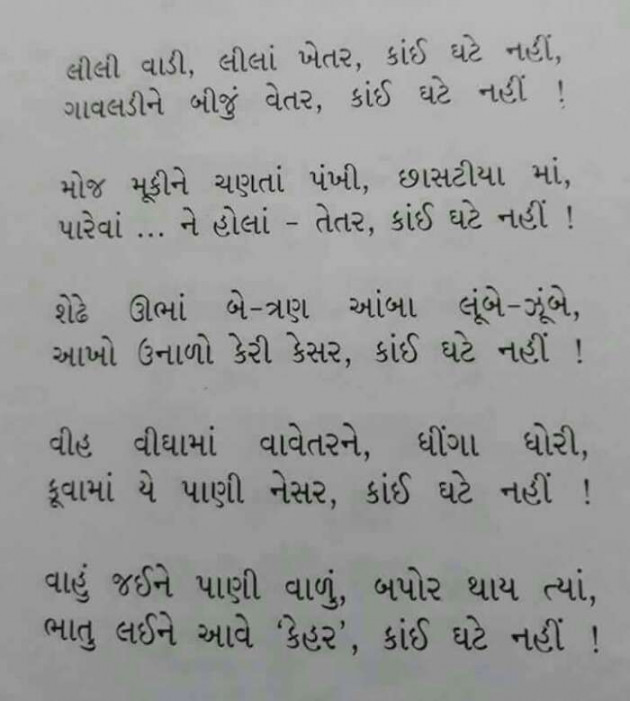 લીલી વાડી, લીલાં ખેતર, કાંઈ ઘટે નહીં,
ગાવલડીને બીજું વેતર, કાંઈ ઘટે નહીં !
મોજ મૂકીને ચણતાં પંખી, છાસટીયા માં,
પારેવાં ... ને હોલાં - તેતર, કાંઈ ઘટે નહીં !
શેઢે ઊભાં બે-ત્રણ આંબા લૂંબે-ઝૂંબે,
આખો ઉનાળો કેરી કેસર, કાંઈ ઘટે નહીં !
વીહ વીઘામાં વાવેતરને, ધીંગા ધોરી,
કૂવામાં યે પાણી નેસર, કાંઈ ઘટે નહીં !
વાહું જઈને પાણી વાળું, બપોર થાય ત્યાં,
ભાતુ લઈને આવે ‘કેહર’, કાંઈ ઘટે નહીં !